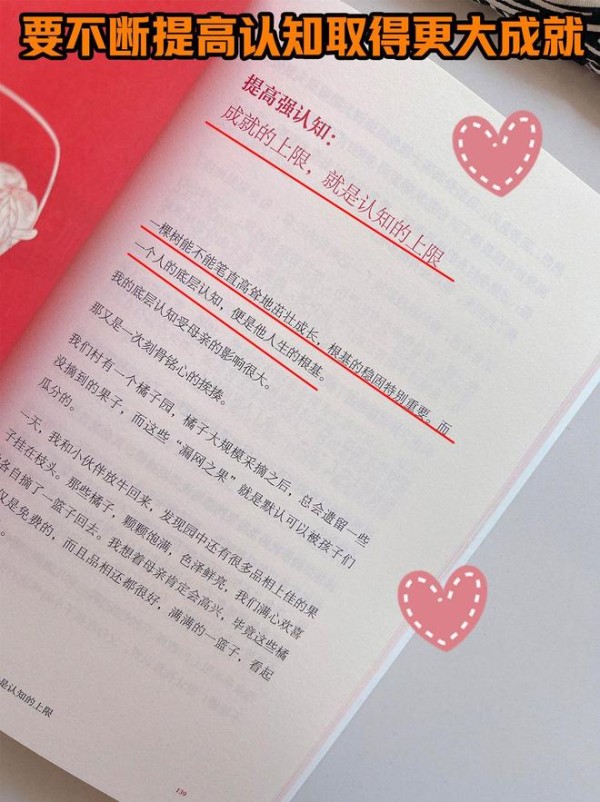 要不断提高认知取得更大成就
提高强认知：
成就的上限，就是认知的上限
一棵树能不能笔直高耸地茁壮成长，根基的稳固特别重要。而
一个人的底层认知，便是他人生的根基。
我的底层认知受母亲的影响很大。
那又是一次刻骨铭心的挨揍。
我们村有一个橘子园，橘子大规模采摘之后，总会遗留一些
没摘到的果子，而这些“漏网之果”就是默认可以被孩子们
瓜分的。
一天，我和小伙伴放牛回来，发现园中还有很多品相上佳的果
子挂在枝头。那些橘子，颗颗饱满，色泽鲜亮，我们满心欢喜
各自摘了一篮子回去。我想着母亲肯定会高兴，毕竟这些橘
又是免费的，而且品相还都很好，满满的一篮子，看起
是认知的上限
139